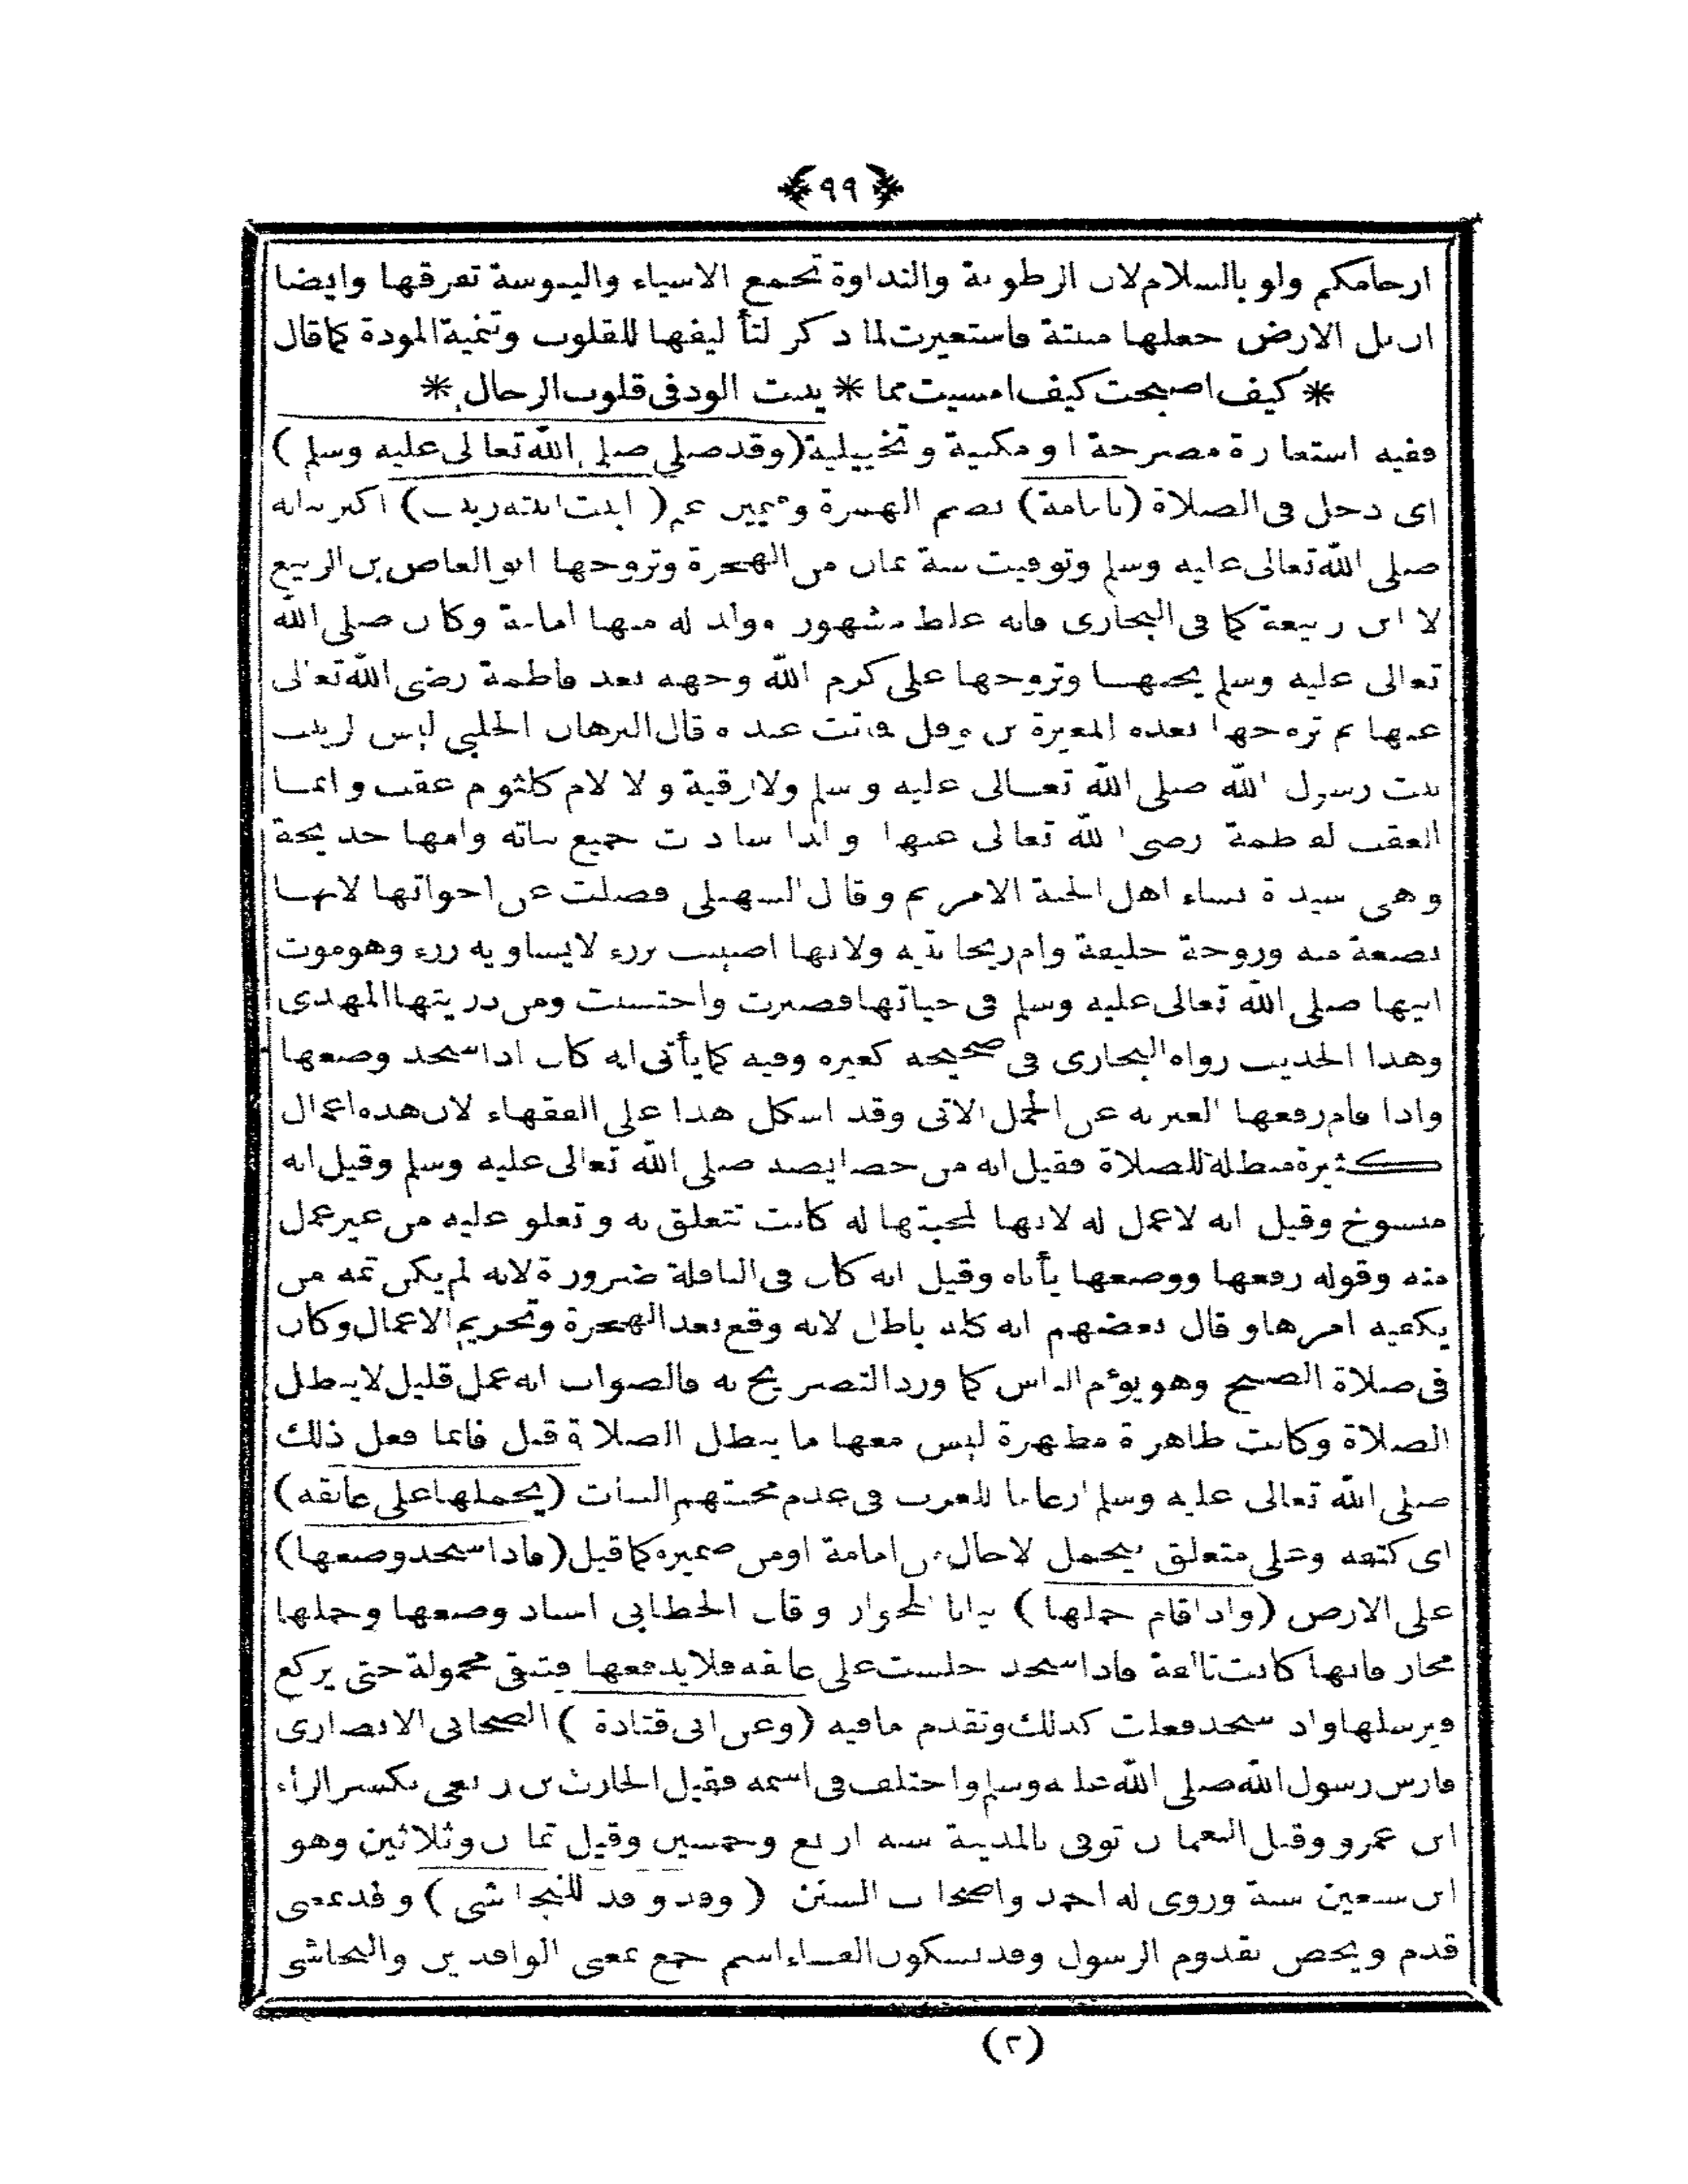 ﴿٩٩﴾
ارحامكم ولو بالسلام لان الرطوبة والنداوة تجمع الاشياء واليبوسة تفرقها وايضا
ان بل الارض جعلها منبتة فاستعيرت لما ذكر لتأليفها للقلوب وتنمية المودة كما قال
* كيف اصبحت كيف امسيت مما * ينبت الود فى قلوب الرجال *
ففيه استعارة مصرحة او مكنية وتخييلية (وقد صلى صلى الله تعالى عليه وسلم)
اى دخل فى الصلاة (بامامة) بضم الهمزة وميمين علم (ابنت ابنته زينب) اكبر بناته
صلى الله تعالى عليه وسلم وتوفيت سنة ثمان من الهجرة وتزوجها ابو العاص بن الربيع
لا ابن ربيعة كما فى البخارى فانه غلط مشهور وولد له منها امامة وكان صلى الله
تعالى عليه وسلم يحبها وتزوجها على كرم الله وجهه بعد فاطمة رضى الله تعالى
عنها ثم تزوجها بعده المغيرة بن نوفل فماتت عنده قال البرهان الحلبي ليس لزينب
بنت رسول الله صلى الله تعالى عليه وسلم ولا رقية ولا لام كلثوم عقب وانما
العقب لفاطمة رضى الله تعالى عنها ولذا سادت جميع بناته وامها خديجة
وهى سيدة نساء اهل الجنة الا مريم وقال السهيلى فضلت عن اخواتها لانها
بضعة منه وزوجة خليفة وام ريحانتيه ولانها اصيبت برزء لا يساويه رزء وهو موت
ابيها صلى الله تعالى عليه وسلم فى حياتها فصبرت واحتسبت ومن ذريتها المهدى
وهذا الحديث رواه البخارى فى صحيحه كغيره وفيه كما يأتى انه كان اذا سجد وضعها
واذا قام رفعها المعبر به عن الحمل الاتى وقد اشكل هذا على الفقهاء لان هذه اعمال
كثيرة مبطلة للصلاة فقيل انه من خصايصه صلى الله تعالى عليه وسلم وقيل انه
منسوخ وقيل انه لا عمل له لانها لمحبتها له كانت تتعلق به وتعلو عليه من غير عمل
منه وقوله رفعها ووضعها يأباه وقيل انه كان فى النافلة ضرورة لانه لم يكن ثمه من
يكفيه امرها وقال بعضهم انه كله باطل لانه وقع بعد الهجرة وتحريم الاعمال وكان
فى صلاة الصبح وهو يؤم الناس كما ورد التصريح به فالصواب انه عمل قليل لا يبطل
الصلاة وكانت طاهرة مطهرة ليس معها ما يبطل الصلاة قيل فانما فعل ذلك
صلى الله تعالى عليه وسلم ارغاما للعرب فى عدم محبتهم البنات (يحملها على عاتقه)
اى كتفه وعلى متعلق بيحمل لا حال من امامة او من ضميره كما قيل (فاذا سجد وضعها)
على الارض (واذا قام حملها) بيانا للجواز وقال الخطابى اسناد وضعها وحملها
مجاز فانها كانت تألفه فاذا سجد جلست على عاتقه فلا يدفعها فتبقى محمولة حتى يركع
فيرسلها واذا سجد فعلت كذلك وتقدم ما فيه (وعن ابى قتادة) الصحابى الانصارى
فارس رسول الله صلى الله عليه وسلم واختلف فى اسمه فقيل الحارث بن ربعى بكسر الراء
ابن عمرو وقيل النعمان توفى بالمدينة سنه اربع وخمسين وقيل ثمان وثلاثين وهو
ابن سبعين سنة وروى له احمد واصحاب السنن (وفد وفد للنجاشى) وفد بمعنى
قدم ويخص بقدوم الرسول وفد بسكون الفاء اسم جمع بمعنى الوافدين والنجاشى
(٢)